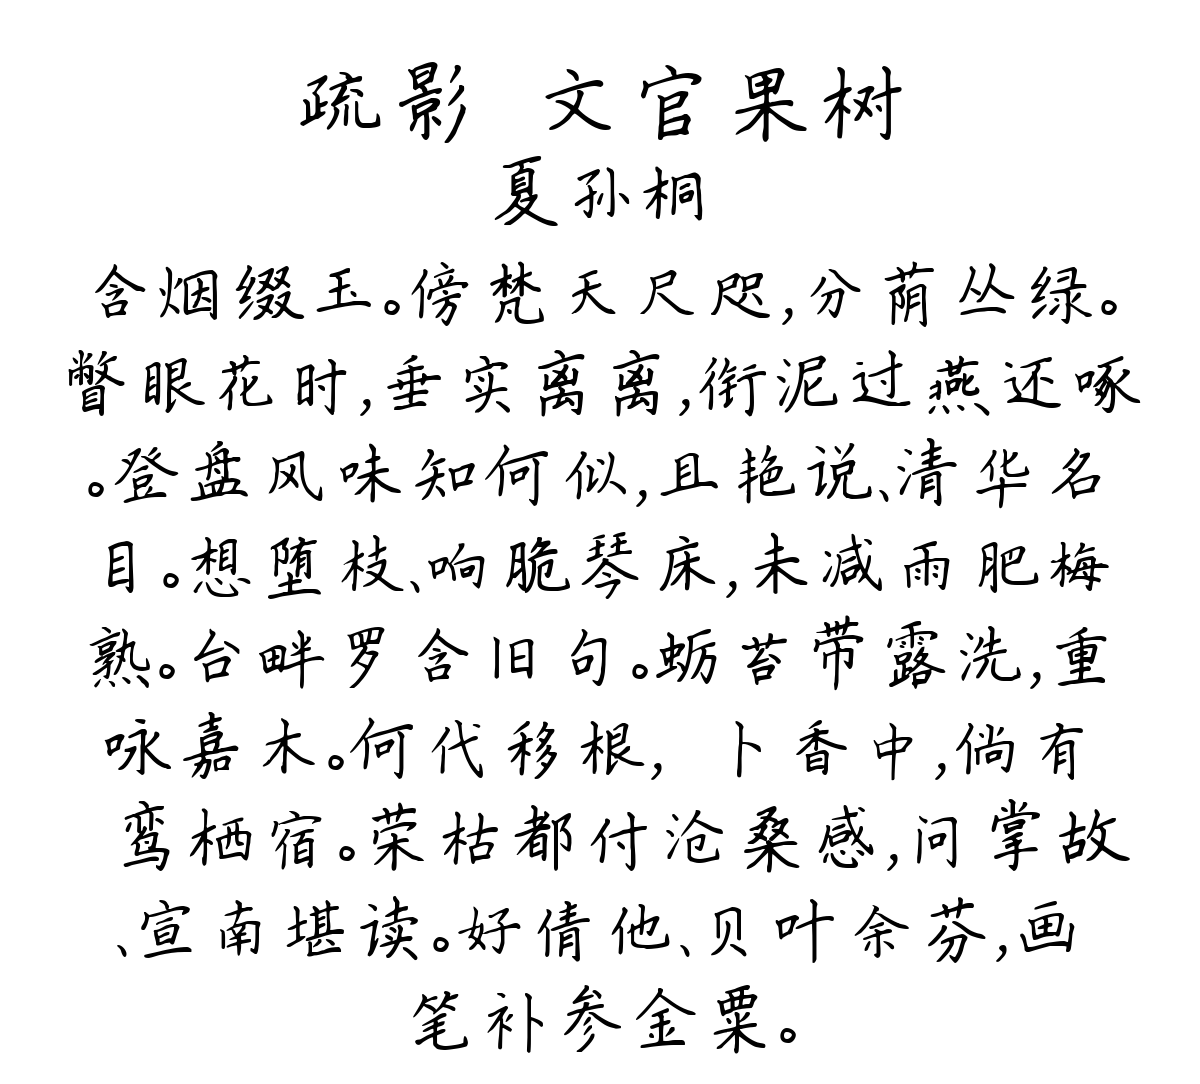 疏影 文官果树
夏孙桐
含烟缀玉。傍梵天尺咫,分荫丛绿。
瞥眼花时,垂实离离,衔泥过燕还啄
。登盘风味知何似,且艳说、清华名
目。想堕枝、响脆琴床,未减雨肥梅
熟。台畔罗含旧句。蛎苔带露洗,重
咏嘉木。何代移根, 卜香中,倘有
鸾栖宿。荣枯都付沧桑感,问掌故
、宣南堪读。好倩他、贝叶余芬,画
笔补参金粟。